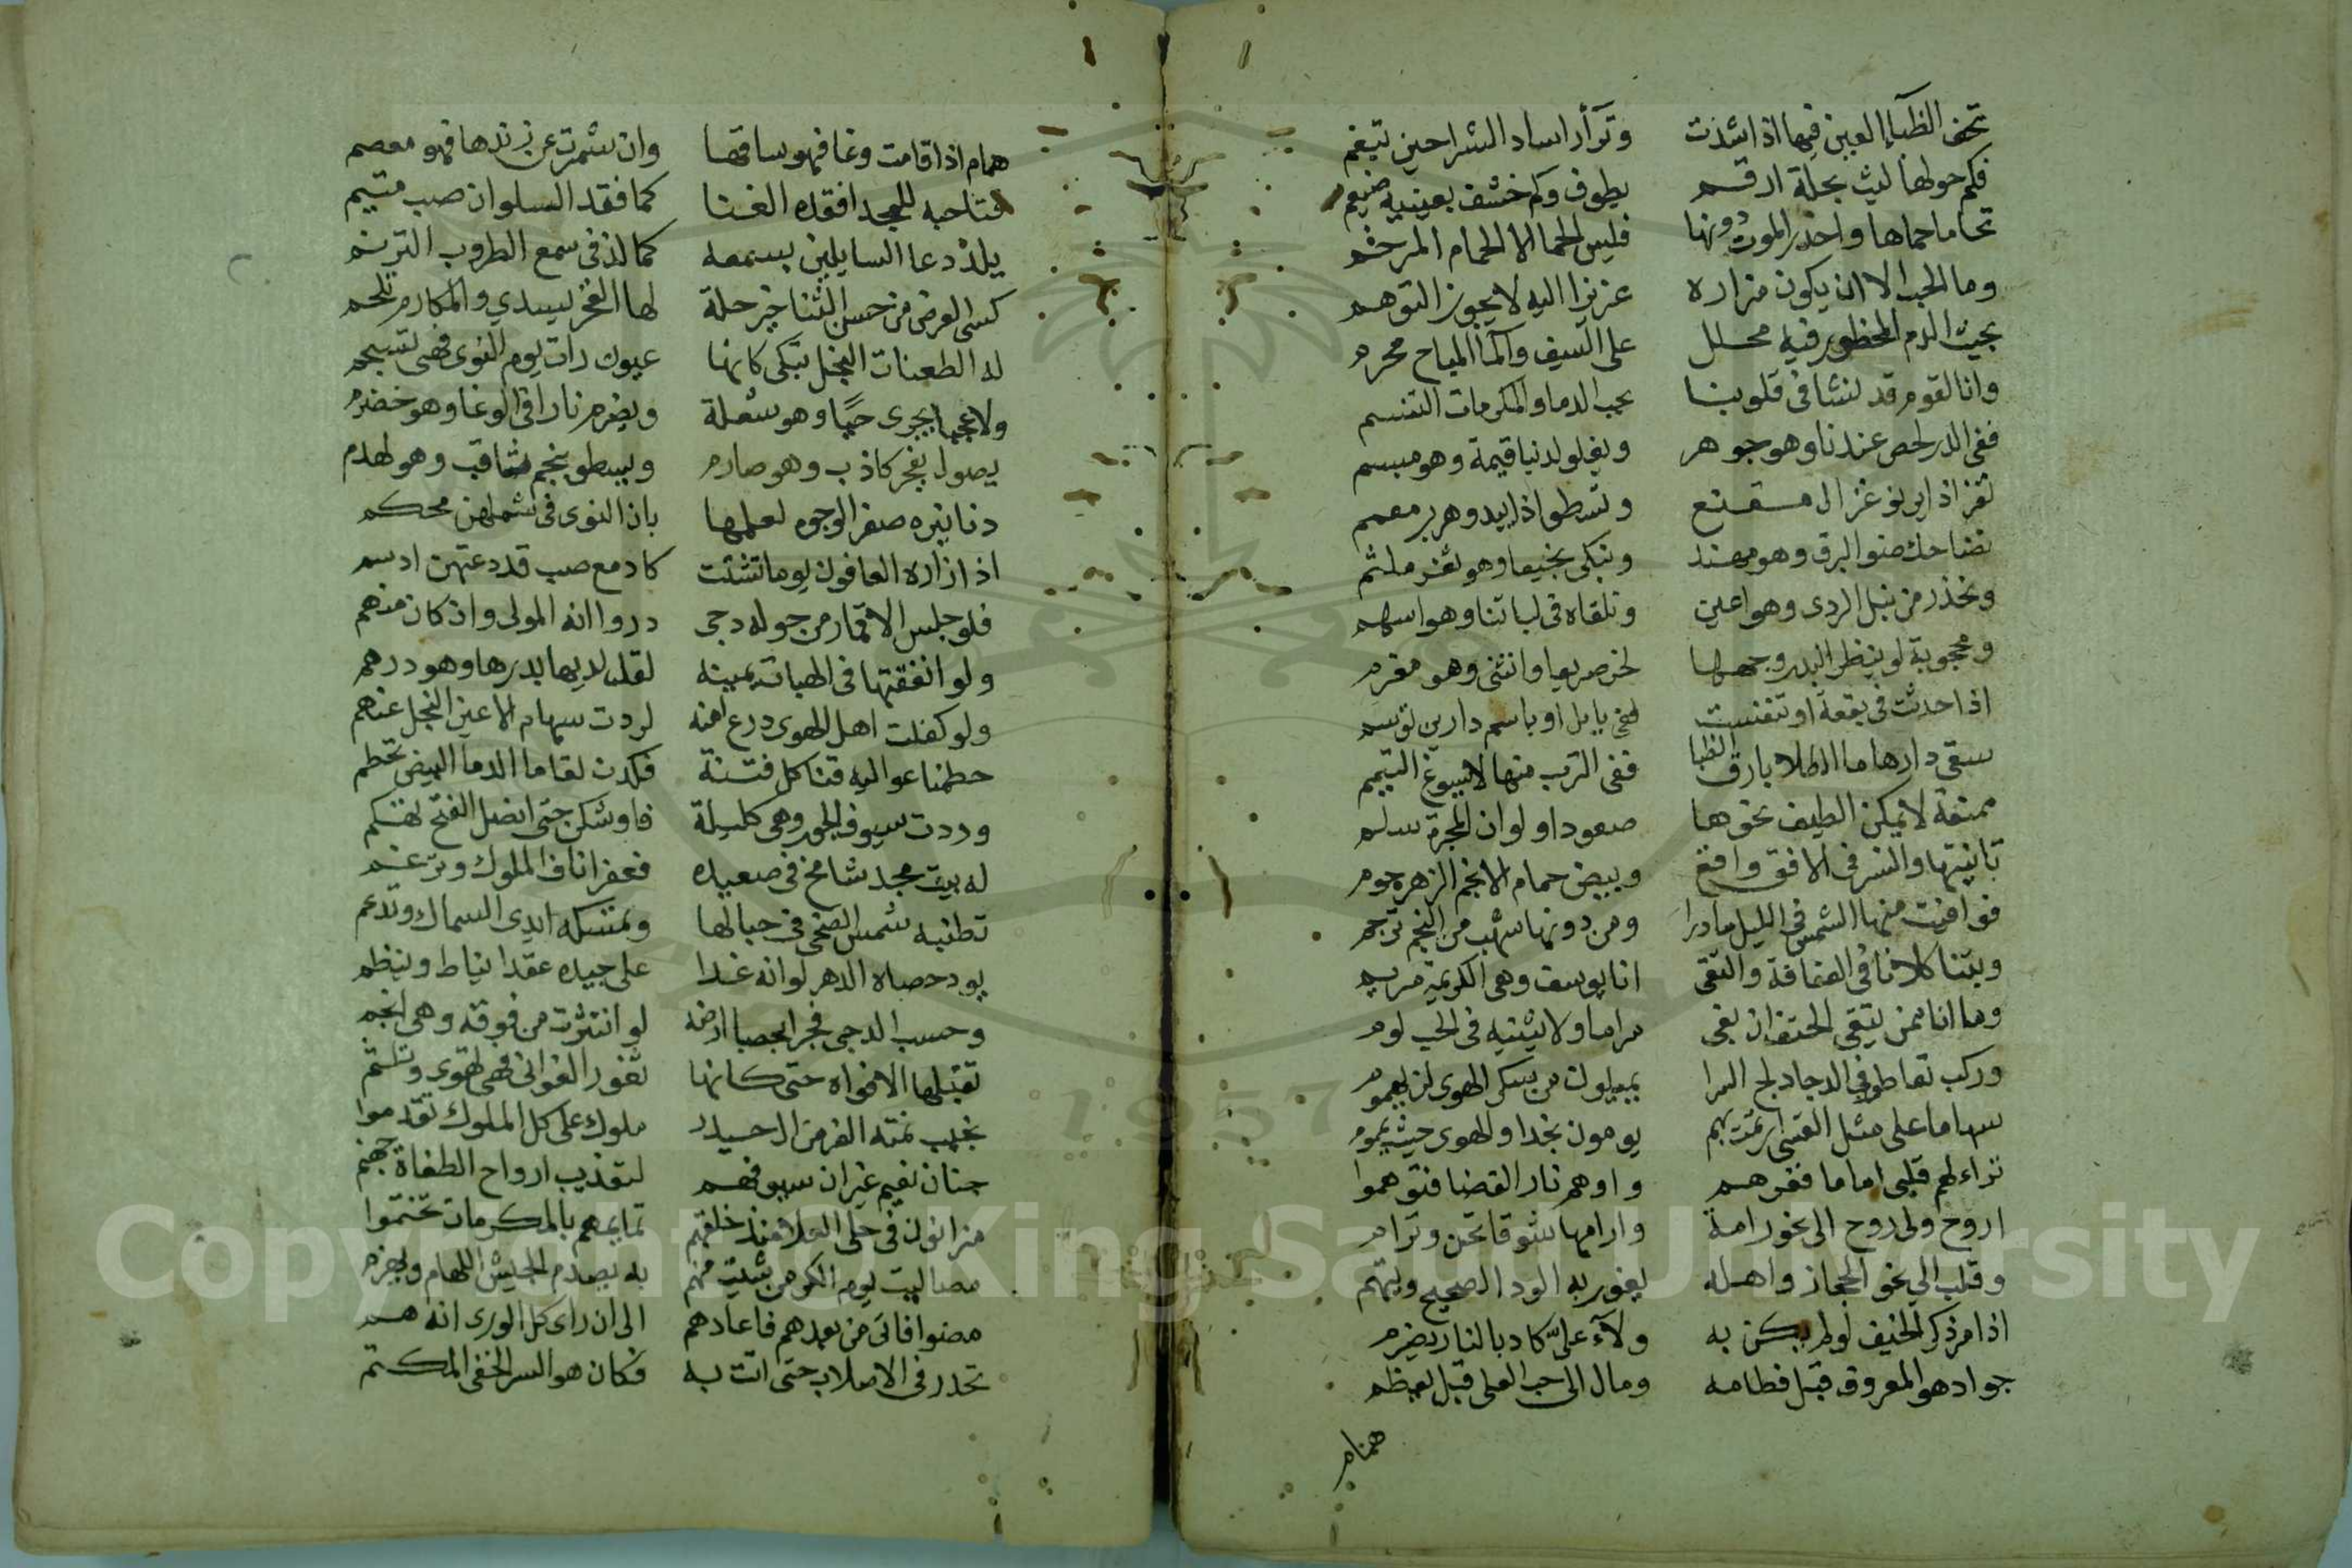 تحف الظبآء العين فيها اذا شذت وتزأر اساد الشراحين تبغم
فكم حولها ليث بحلة ارقم يطوف وكم خشف بعينيه ضيغم
تحاما حماها واحذر الموت دونها فليس الحما الا الحمام المرخم
وما الحب الا ان يكون مزاره عزيزا اليه لا يجوز التوهم
بحيث الدم المحظور فيه محلل على السيف والمآ المباح محرم
وانا لقوم قد نشا في قلوبنا بحب الدما والمكرمات التنسم
ففي الدر لحص عندنا وهو جوهر ويغلو لدنيا قيمة وهو مبسم
نفر اذا يرنو غزال مقنع ونسطو اذا يبدو هزبر معمم
نضاحك ضوا البرق وهو مهند ونبكي نجيعا وهو ثغر ملثم
ونحذر من نبل الردى وهو اعين ونلقاه في لباتنا وهو اسهم
ومحجوبة لو ينظر البدر وجهها لخر صريعا وانثنى وهو مغرم
اذا حدثت في بقعة او تنفست ففي بابل او باسم دارين توسم
سقى دارها ما الطلا بارق الظبا ففي الترب منها لا يسوغ التيمم
ممنعة لا يمكن الطيف نحوها صعودا ولو ان المجرة سلم
تانيتها والنسر في الافق واقع وبيض حمام الانجم الزهر حوم
فوافيت منها الشمس في الليل مادرا ومن دونها شهب من النجم ترجم
وبتنا كلانا في العفافة والتقى انا يوسف وهي الكريمة مريم
وما انا ممن يتقي الحتف ان بغى مراما ولا يثنيه في الحب لوم
وركب تعاطوا في الدجا دلج السرا يميلون من سكر الهوى لن يهوموا
سهاما على مثل القسي ارتمت بهم يومون نجدا والهوى حيث يمموا
تراء لهم قلبي اماما فغرهم واوهم نار الغضا فتوهموا
اروح ولي روح الى نحو رامة وارامها شوقا تحن وترام
وقلب الي نحو الحجاز واهله يغور به الود الصحيح ويتهم
اذا مر ذكر الخيف لو لم يكن به ولآء عليّ كاد بالنار يضرم
جواد هو المعروف قبل فطامه ومال الى حب العلى قبل يعظم
همام
همام اذا قامت وغا فهو ساقها وان شمرت عن زندها فهو معصم
فتا حبه للمجد افقده الغنا كما فقد السلوان صب متيم
يلذ دعا السايلين بسمعه كما لذ في سمع الطروب الترنم
كسى العرض من حسن الثنا خير حلة لها الفخر يسدي والمكارم تلحم
له الطعنات النجل تبكي كانها عيون رات يوم النوى فهي تسجم
ولا عجبا يجرى حيًا وهو شعلة ويضرم نارا في الوغا وهو خضرم
يصول بفجر كاذب وهو صارم ويسطو بنجم ثاقب وهو لهذم
دنانيره صفر الوجوه لعلمها بان النوى في شملهن محكم
اذا زاره العافون يوما تشتت كادمع صب قد دعتهن ارسم
فلو جلس الاقمار من حوله دجى دروا انه المولى وان كان منهم
ولو انفقتها في الهبات يمينه لقل لديها بدرها وهو درهم
ولو كفلت اهل الهوى درع امنه لردت سهام الاعين النجل عنهم
حطمنا عواليه قنا كل فتنة فكدن لقاما الدما البيض تحطم
وردت سيوف الجور وهي كليلة فاوشكن حتى انصل الفتح تكهم
له بيت مجد شامخ في صعيده فعفر اناف الملوك وترغم
تطنبه شمس الضحى في حبالها وتمسكه ايدى السماك وتدعم
يود حصاه الدهر لو انه غدا على جيده عقدا يناط وينظم
وحسب الدجى فجرا بحصبا ارضه لو انتثرت من فوقه وهي انجم
تقبلها الافواه حتى كانها ثغور الغواني فهي تهوى وتلثم
نجيب نمته الغر من ال حيدر ملوك على كل الملوك تقدموا
جنان نعيم غير ان سيوفهم لتعذيب ارواح الطغاة جهنم
مزانون في حلى العلا منذ خلقهم تمايمهم بالمكرمات تختموا
مصاليت يوم الكر من شيت منهم به يصدم الجيش اللهام ويهزم
مضوا فاتى من بعدهم فاعادهم الى ان راى كل الورى انه هم
تحدر في الاصلاب حتى اتت به فكان هو السر الخفي المكتم
1957
Copyright © King Saud University